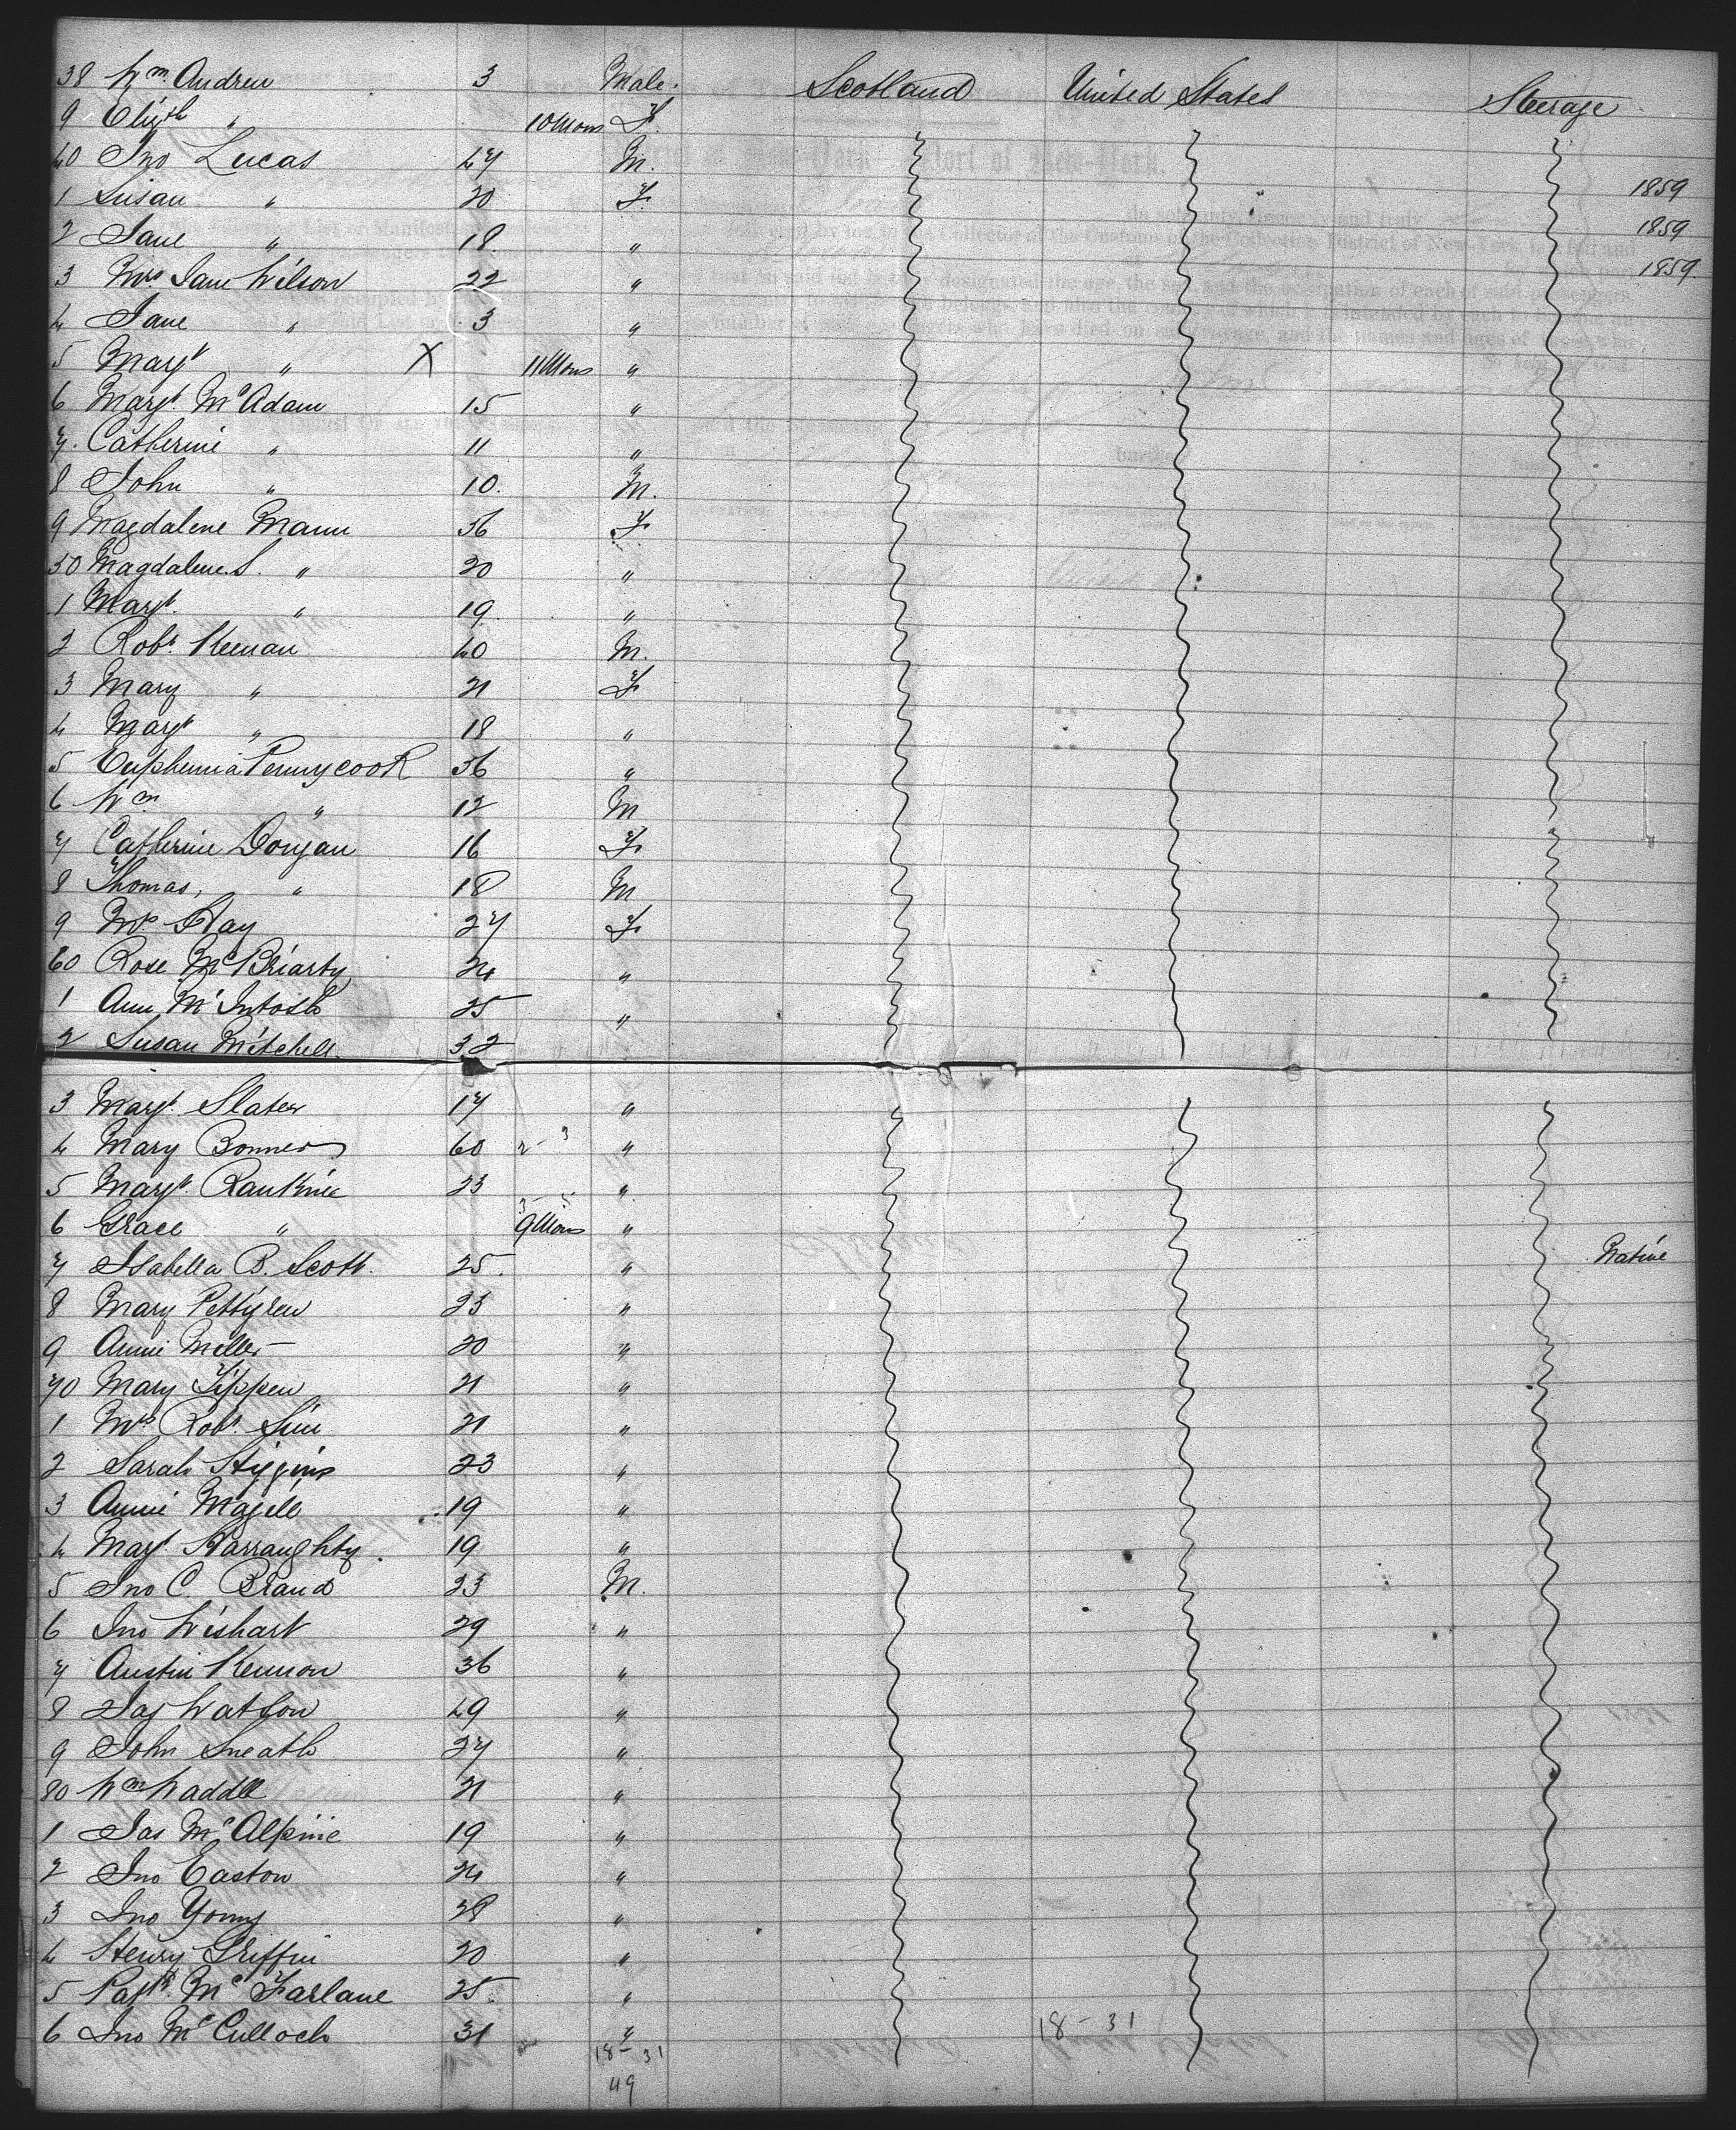 38 Wm Andrew 3 Male. Scotland United States Steerage
9 Elizth " 10 Mons F.
40 Jno Lucas 47 M.
1 Susan " 20 F. 1859
2 Jane " 18 " 1859
3 Mrs Jane Wilson 22 " 1859
4 Jane " 3 "
5 Margt " X 11 Mons "
6 Margt. McAdam 15 "
7. Catherine " 11 "
8 John " 10. M.
9 Magdalene Mann 56 F
50 Magdalene S. " 20 "
1 Margt. " 19. "
2 Robt. Keenan 40 M.
3 Mary " 21 F
4 Margt " 18 "
5 Euphemia Pennycook 36 "
6 Wm " 12 M
7 Catherine Dougan 16 F.
8 Thomas, " 18 M
9 Mrs Hay 27 F
60 Rose McBriarty 24 "
1 Ann McIntosh 25 "
2 Susan Mitchell 32
3 Margt. Slater 17 "
4 Mary Bonner 60 2-3 "
5 Margt. Rankine 23 "
6 Grace " 9 Mons "
7 Isabella B. Scott. 25. " Native
8 Mary Pettigrew 23 "
9 Annie Miller 20 "
70 Mary Tippen 21 "
1 Mrs Robt. Sim 21 "
2 Sarah Higgins 23 "
3 Annie Magill 19 "
4 Margt Harraughty. 19 "
5 Jno C. Brand 23 M.
6 Jno Wishart 29 "
7 Austin Kennon 36 "
8 Jas Watson 49 "
9 John Sneath 27 "
80 Wm Waddell 21 "
1 Jas McAlpine 19 "
2 Jno Easton 24 "
3 Jno Young 28 "
4 Henry Griffin 20 "
5 Patk. McFarlane 25. "
6 Jno McCulloch 31 " 18-31
18-31
49